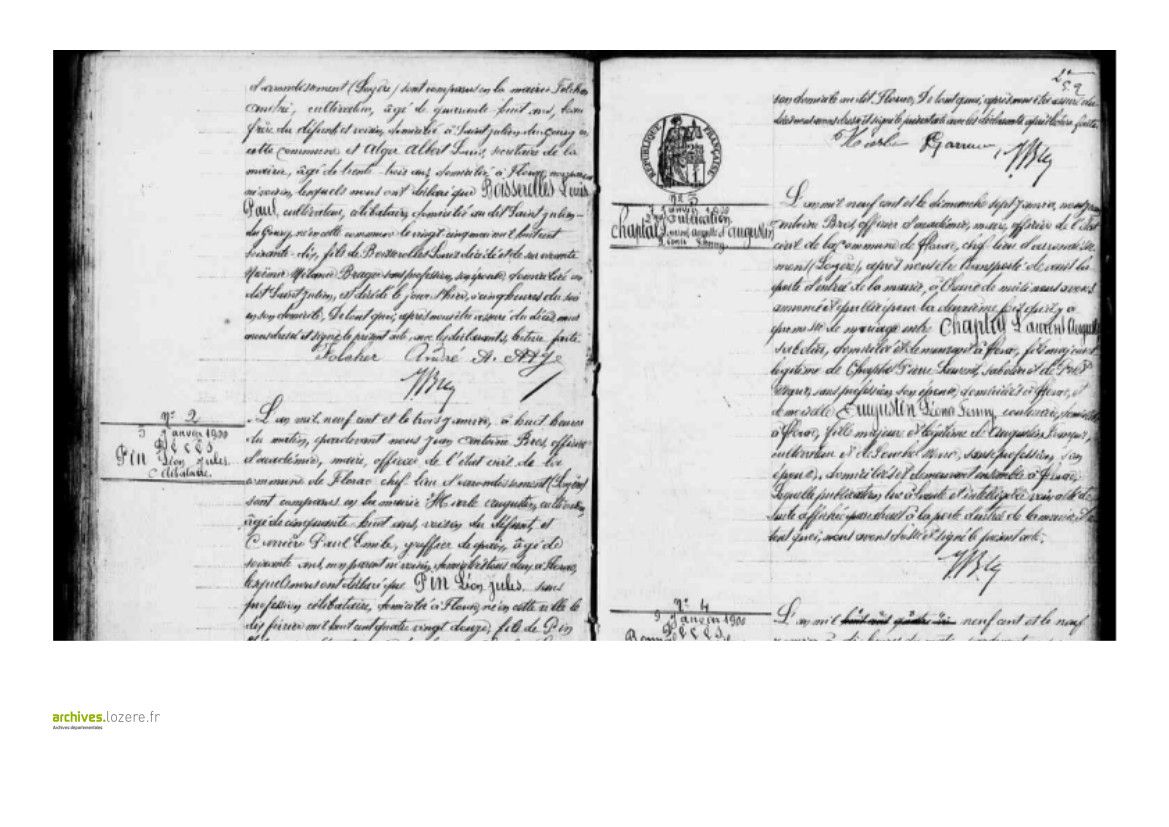 d'arrondissement (Lozère) sont comparus en la mairie Folcher
André, cultivateur, âgé de quarante huit ans, beau
frère du défunt et voisin, domicilié à Saint Julien du Gourg en
cette commune et Alger Albert Louis, secrétaire de la
mairie, âgé de trente trois ans, domicilié à Florac, non parent
ni voisin, lesquels nous ont déclaré que Boisserolles Louis
Paul, cultivateur, célibataire, domicilié au dit Saint Julien-
du Gourg, né en cette commune le vingt cinq mai mil huit cent
soixante dix, fils de Boisserolles Louis décédé et de sa vivante
Mélanie sans profession, son épouse, domiciliée au
dit Saint Julien, est décédé le jour d'hier, à cinq heures du soir
en son domicile. De tout quoi, après nous être assuré du décès, nous
avons dressé et signé le présent acte, avec les déclarants, lecture faite.
Folcher André A. Alger
N° 2
3 Janvier 1900
Décès
Pin Léon Jules.
Célibataire.
L'an mil neuf cent et le trois Janvier, à huit heures
du matin, pardevant nous Jean Antoine Bres, officier
d'académie, maire, officier de l'état civil de la
commune de Florac chef lieu d'arrondissement (Lozère)
sont comparus en la mairie Augustin, cultivateur,
âgé de cinquante huit ans, voisin du défunt, et
Carrière Paul Emile, greffier de paix, âgé de
soixante ans, non parent ni voisin, domiciliés tous deux à Florac,
lesquels nous ont déclaré que Pin Léon Jules, sans
profession célibataire, domicilié à Florac, né en cette ville le
dix février mil huit cent quatre vingt douze, fils de Pin
son domicile au dit Florac. De tout quoi, après nous être assuré du
décès nous avons dressé et signé le présent acte avec les déclarants après lecture faite.
RÉPUBLIQUE FRANÇAISE
N° 3
7 Janvier 1900
2me Publication
Chaptal Laurent Auguste et Augustin
Léonie Fanny.
L'an mil neuf cent et le dimanche sept Janvier, nous Jean
Antoine Bres, officier d'académie, maire, officier de l'Etat
civil de la commune de Florac, chef lieu d'arrondisse-
ment (Lozère), après nous être transporté devant la
porte d'entrée de la mairie, à l'heure de midi nous avons
annoncé et publié pour la deuxième fois qu'il y a
promesse de mariage entre Chaptal Laurent Auguste
sabotier, domicilié et demeurant à Florac, fils majeur et
légitime de Chaptal Pierre Laurent, sabotier et de
sans profession son épouse, domiciliés à Florac, et
demoiselle Augustin Léonie Fanny, couturière, domiciliée
à Florac, fille majeure et légitime d'Augustin
cultivateur et de sans profession, son
épouse, domiciliés et demeurant ensemble à Florac.
Laquelle publication lue à haute et intelligible voix a été de
suite affichée par extrait à la porte d'entrée de la mairie. De
tout quoi, nous avons dressé et signé le présent acte.
N° 4
9 Janvier 1900
Décès
L'an mil huit cent quatre vin neuf cent et le neuf
archives.lozere.fr
Archives départementales